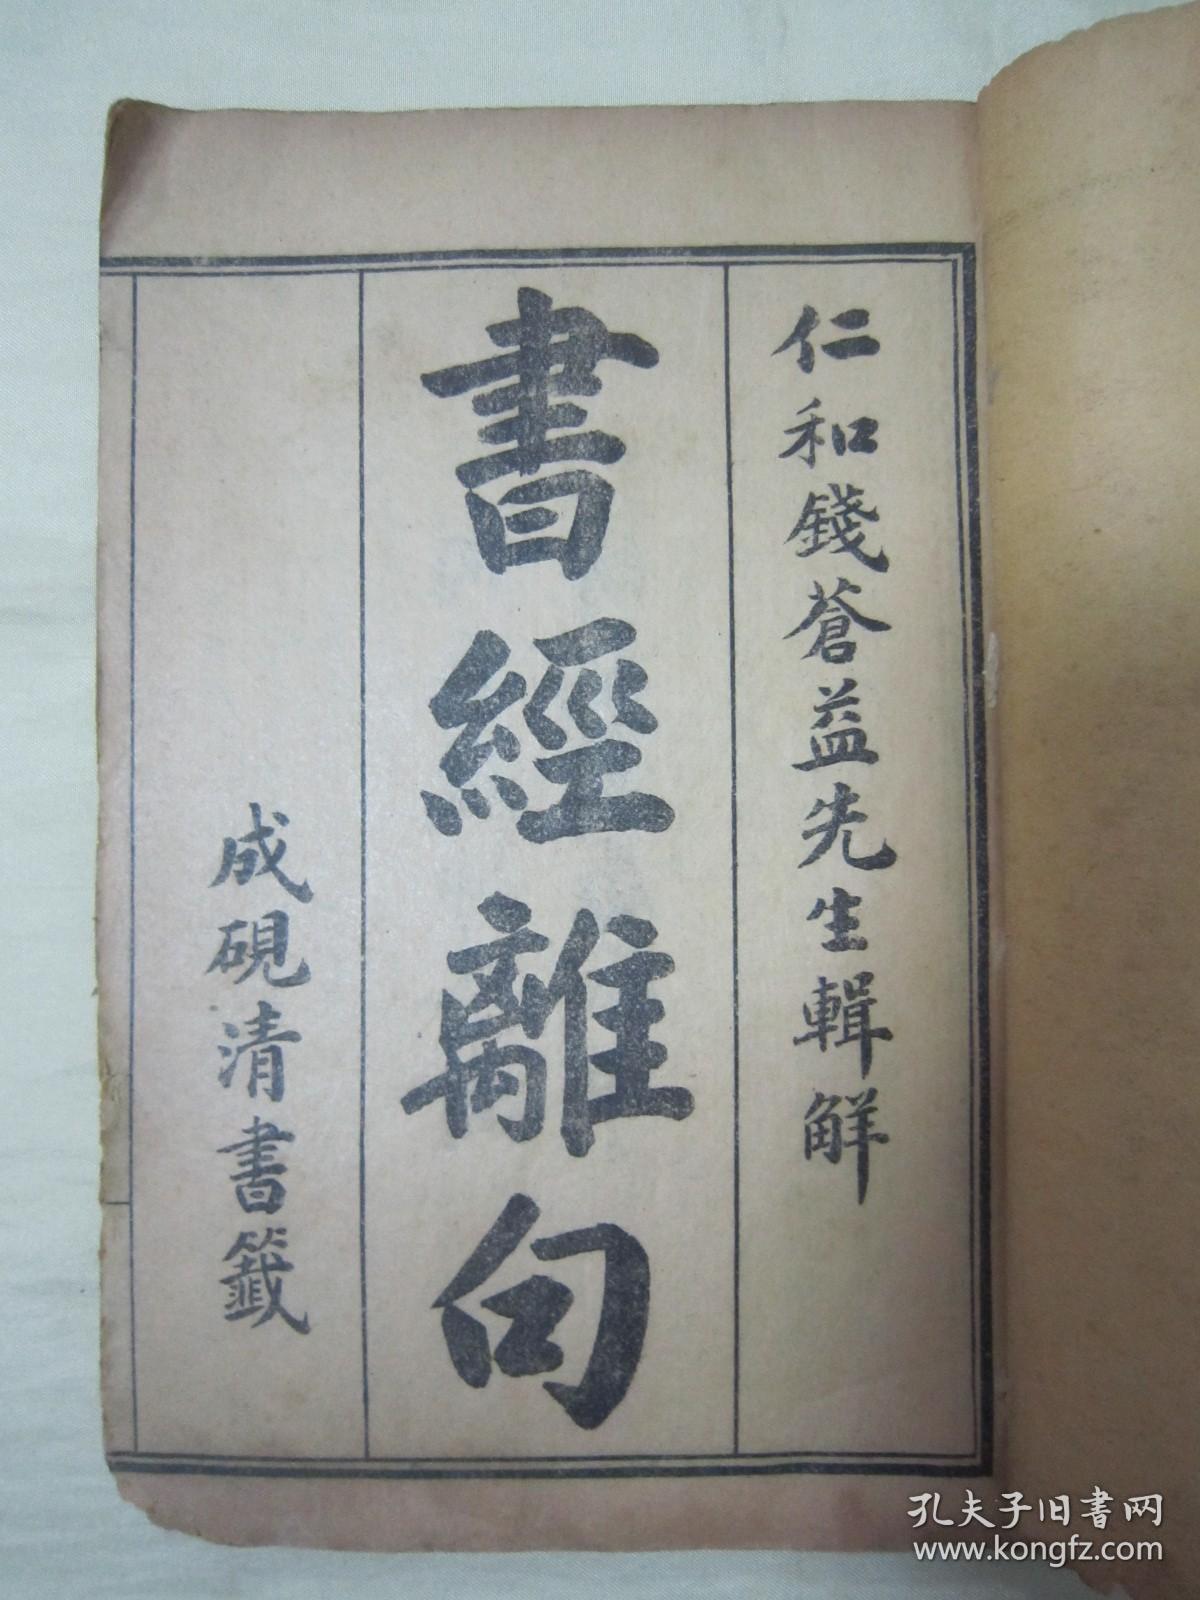 仁和錢蒼益先生輯解
書經離句
成硯清書籤
孔夫子旧书网
www.kongfz.com